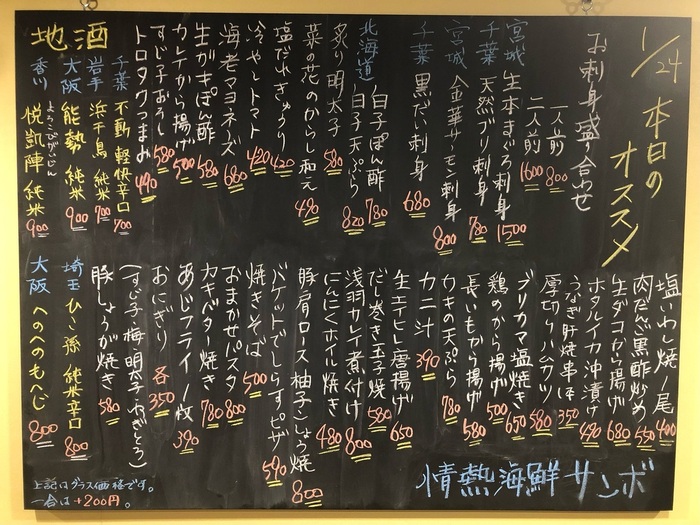 1/24 本日の
オススメ
お刺身盛り合わせ
一人前 800
二人前 1600
宮城 生本まぐろ刺身 1500
千葉 天然ブリ刺身 780
宮城 金華サーモン刺身 800
千葉 黒だい刺身 680
北海道 白子ぽん酢 780
白子天ぷら 820
炙り明太子 580
菜の花のからし和え 490
塩だれきゅうり 420
冷やしトマト 420
海老マヨネーズ 680
生ガキぽん酢 580
カレイから揚げ 500
すじ子おろし 580
トロタクつまみ 490
地酒
千葉 不動 軽快辛口 700
岩手 浜千鳥 純米 700
大阪 能勢 純米 900
香川 悦凱陣 純米 900
よろこびがいじん
塩いわし焼 1尾 400
肉だんご黒酢炒め 550
生ダコから揚げ 680
ホタルイカ沖漬け 490
うなぎ肝焼串 1本 350
厚切りハムカツ 580
ブリカマ塩焼き 650
鶏のから揚げ 500
長いもから揚げ 580
カキの天ぷら 780
カニ汁 390
生エイヒレ唐揚げ 650
だし巻き玉子焼 580
浅羽カレイ煮付け 800
にんにくホイル焼き 480
豚肩ロース柚子こしょう焼 800
バケットでしらすピザ 590
焼きそば 500
おまかせパスタ 800
カキバター焼き 780
あじフライ 1枚 390
おにぎり 各350
(すじ子、梅、明太子、ねぎとろ)
豚しょうが焼き 580
埼玉 ひこ孫 純米辛口 800
大阪 へのへのもへじ 800
上記はグラス価格です。
一合は+200円。
情熱海鮮サンボ